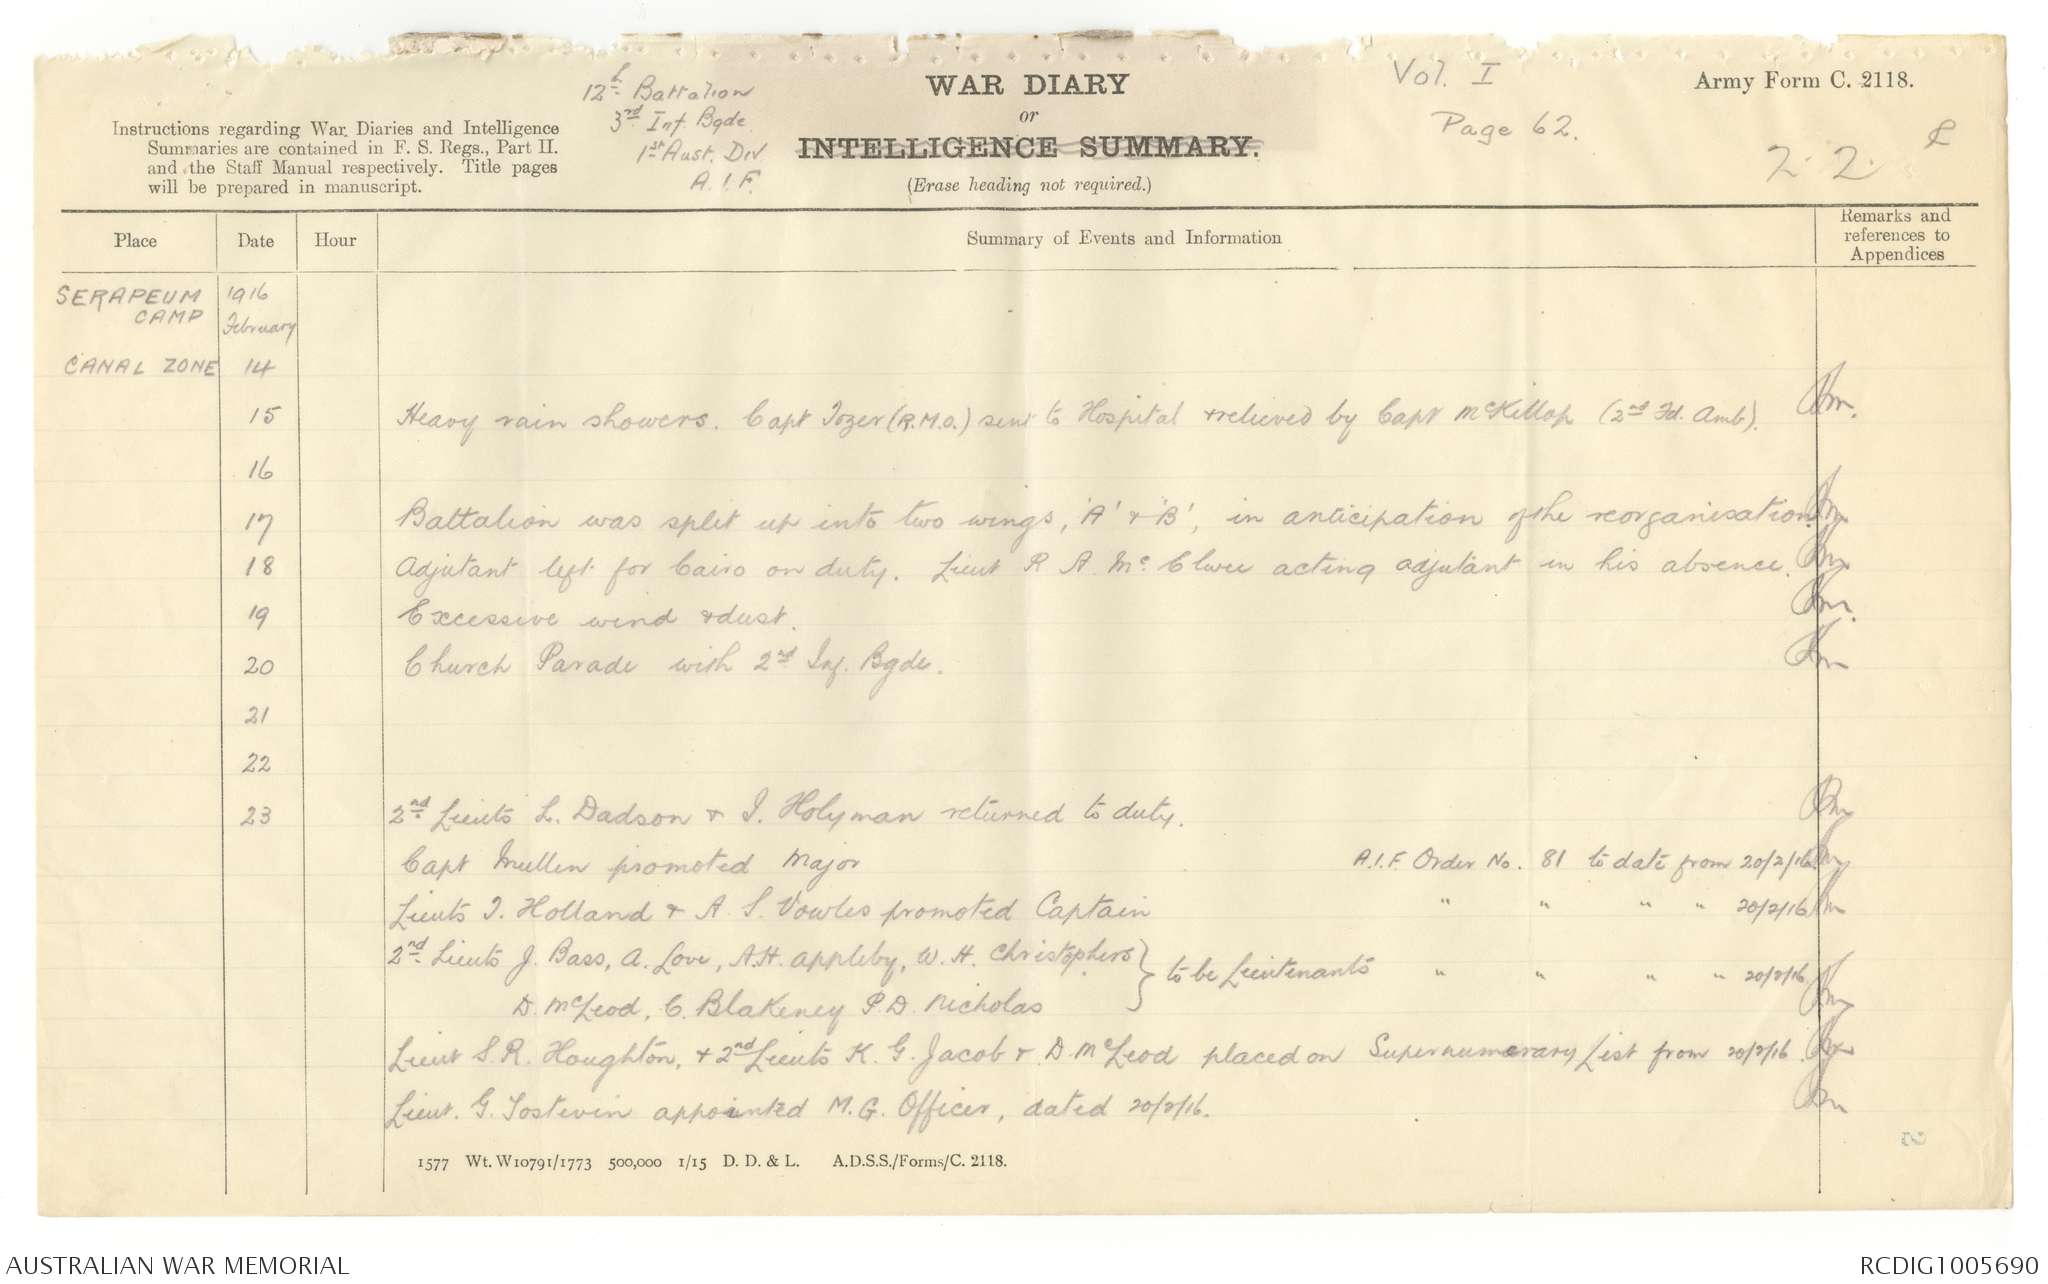 12th Battalion
3rd Inf Bgde.
1st Aust. Div.
A.I.F.
WAR DIARY
or
INTELLIGENCE SUMMARY.
(Erase heading not required.)
Vol. I
Page 62.
Army Form C. 2118.
2. 2.
Instructions regarding War Diaries and Intelligence
Summaries are contained in F. S. Regs., Part II.
and the Staff Manual respectively. Title pages
will be prepared in manuscript.
Place Date Hour Summary of Events and Information Remarks and references to Appendices
SERAPEUM 1916
CAMP February
CANAL ZONE 14
15 Heavy rain showers. Capt Tozer (R.M.O.) sent to Hospital & relieved by Capt McKillop (2nd Fd. Amb).
16
17 Battalion was split up into two wings, 'A' & 'B', in anticipation of the reorganisation.
18 Adjutant left for Cairo on duty. Lieut R A Mc. Elwee acting adjutant in his absence.
19 Excessive wind & dust.
20 Church Parade with 2nd Inf. Bgde.
21
22
23 2nd Lieuts L. Dadson & I. Holyman returned to duty.
Capt Mullen promoted Major A.I.F. Order No. 81 to date from 20/2/16.
Lieuts I. Holland & A. S. Vowles promoted Captain " " " " 20/2/16
2nd Lieuts J. Bass, A. Love, A.H. Appleby, W. H. Christophers
D. McLeod, C. Blakeney P. D. Nicholas } to be Lieutenants " " " " 20/2/16
Lieut S. R. Houghton, & 2nd Lieuts K. G. Jacob & D. McLeod placed on Supernumerary List from 20/2/16.
Lieut. G. Tostevin appointed M. G. Officer, dated 20/2/16.
1577 Wt. W10791/1773 500,000 1/15 D. D. & L. A.D.S.S./Forms/C. 2118.
AUSTRALIAN WAR MEMORIAL
RCDIG1005690